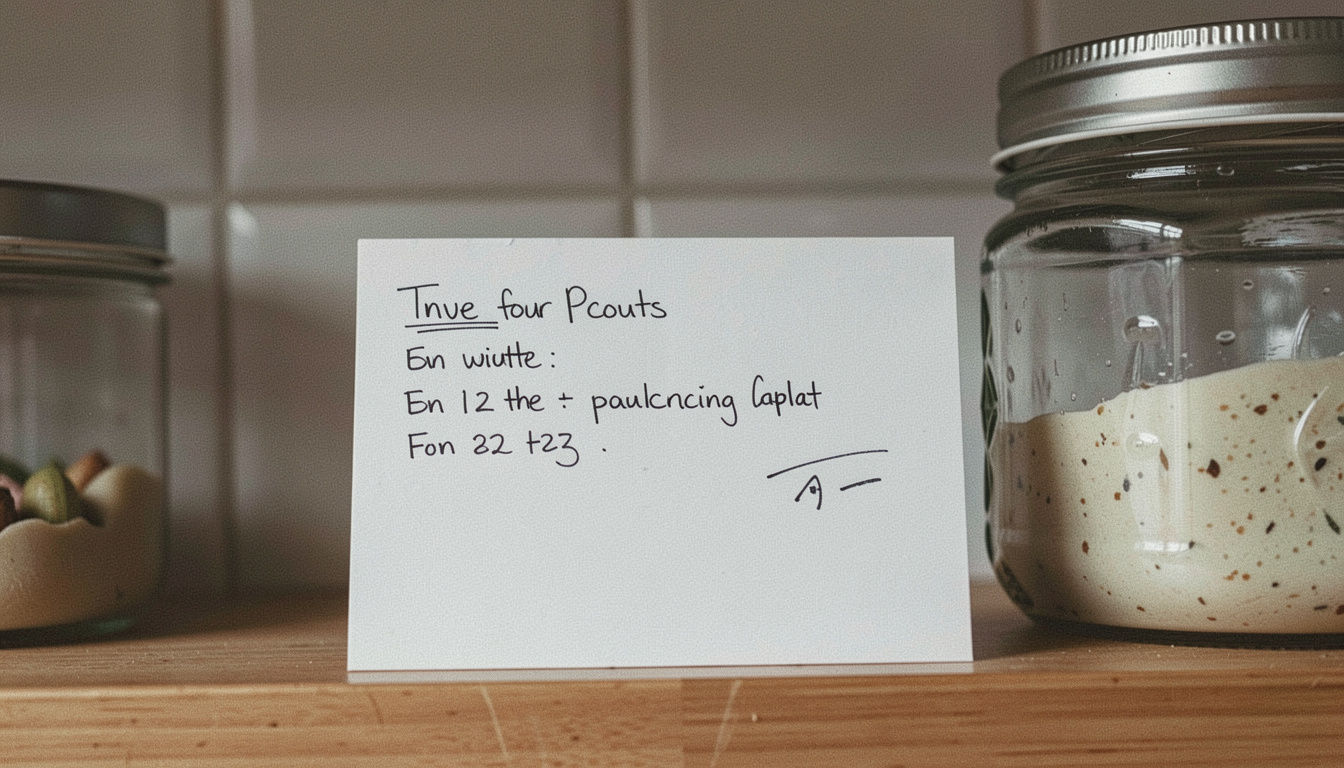 Tnve four Pcouts
En wiutte :
En 12 the ÷ paulcncing Caplat
Fon 32 t23 .
A –